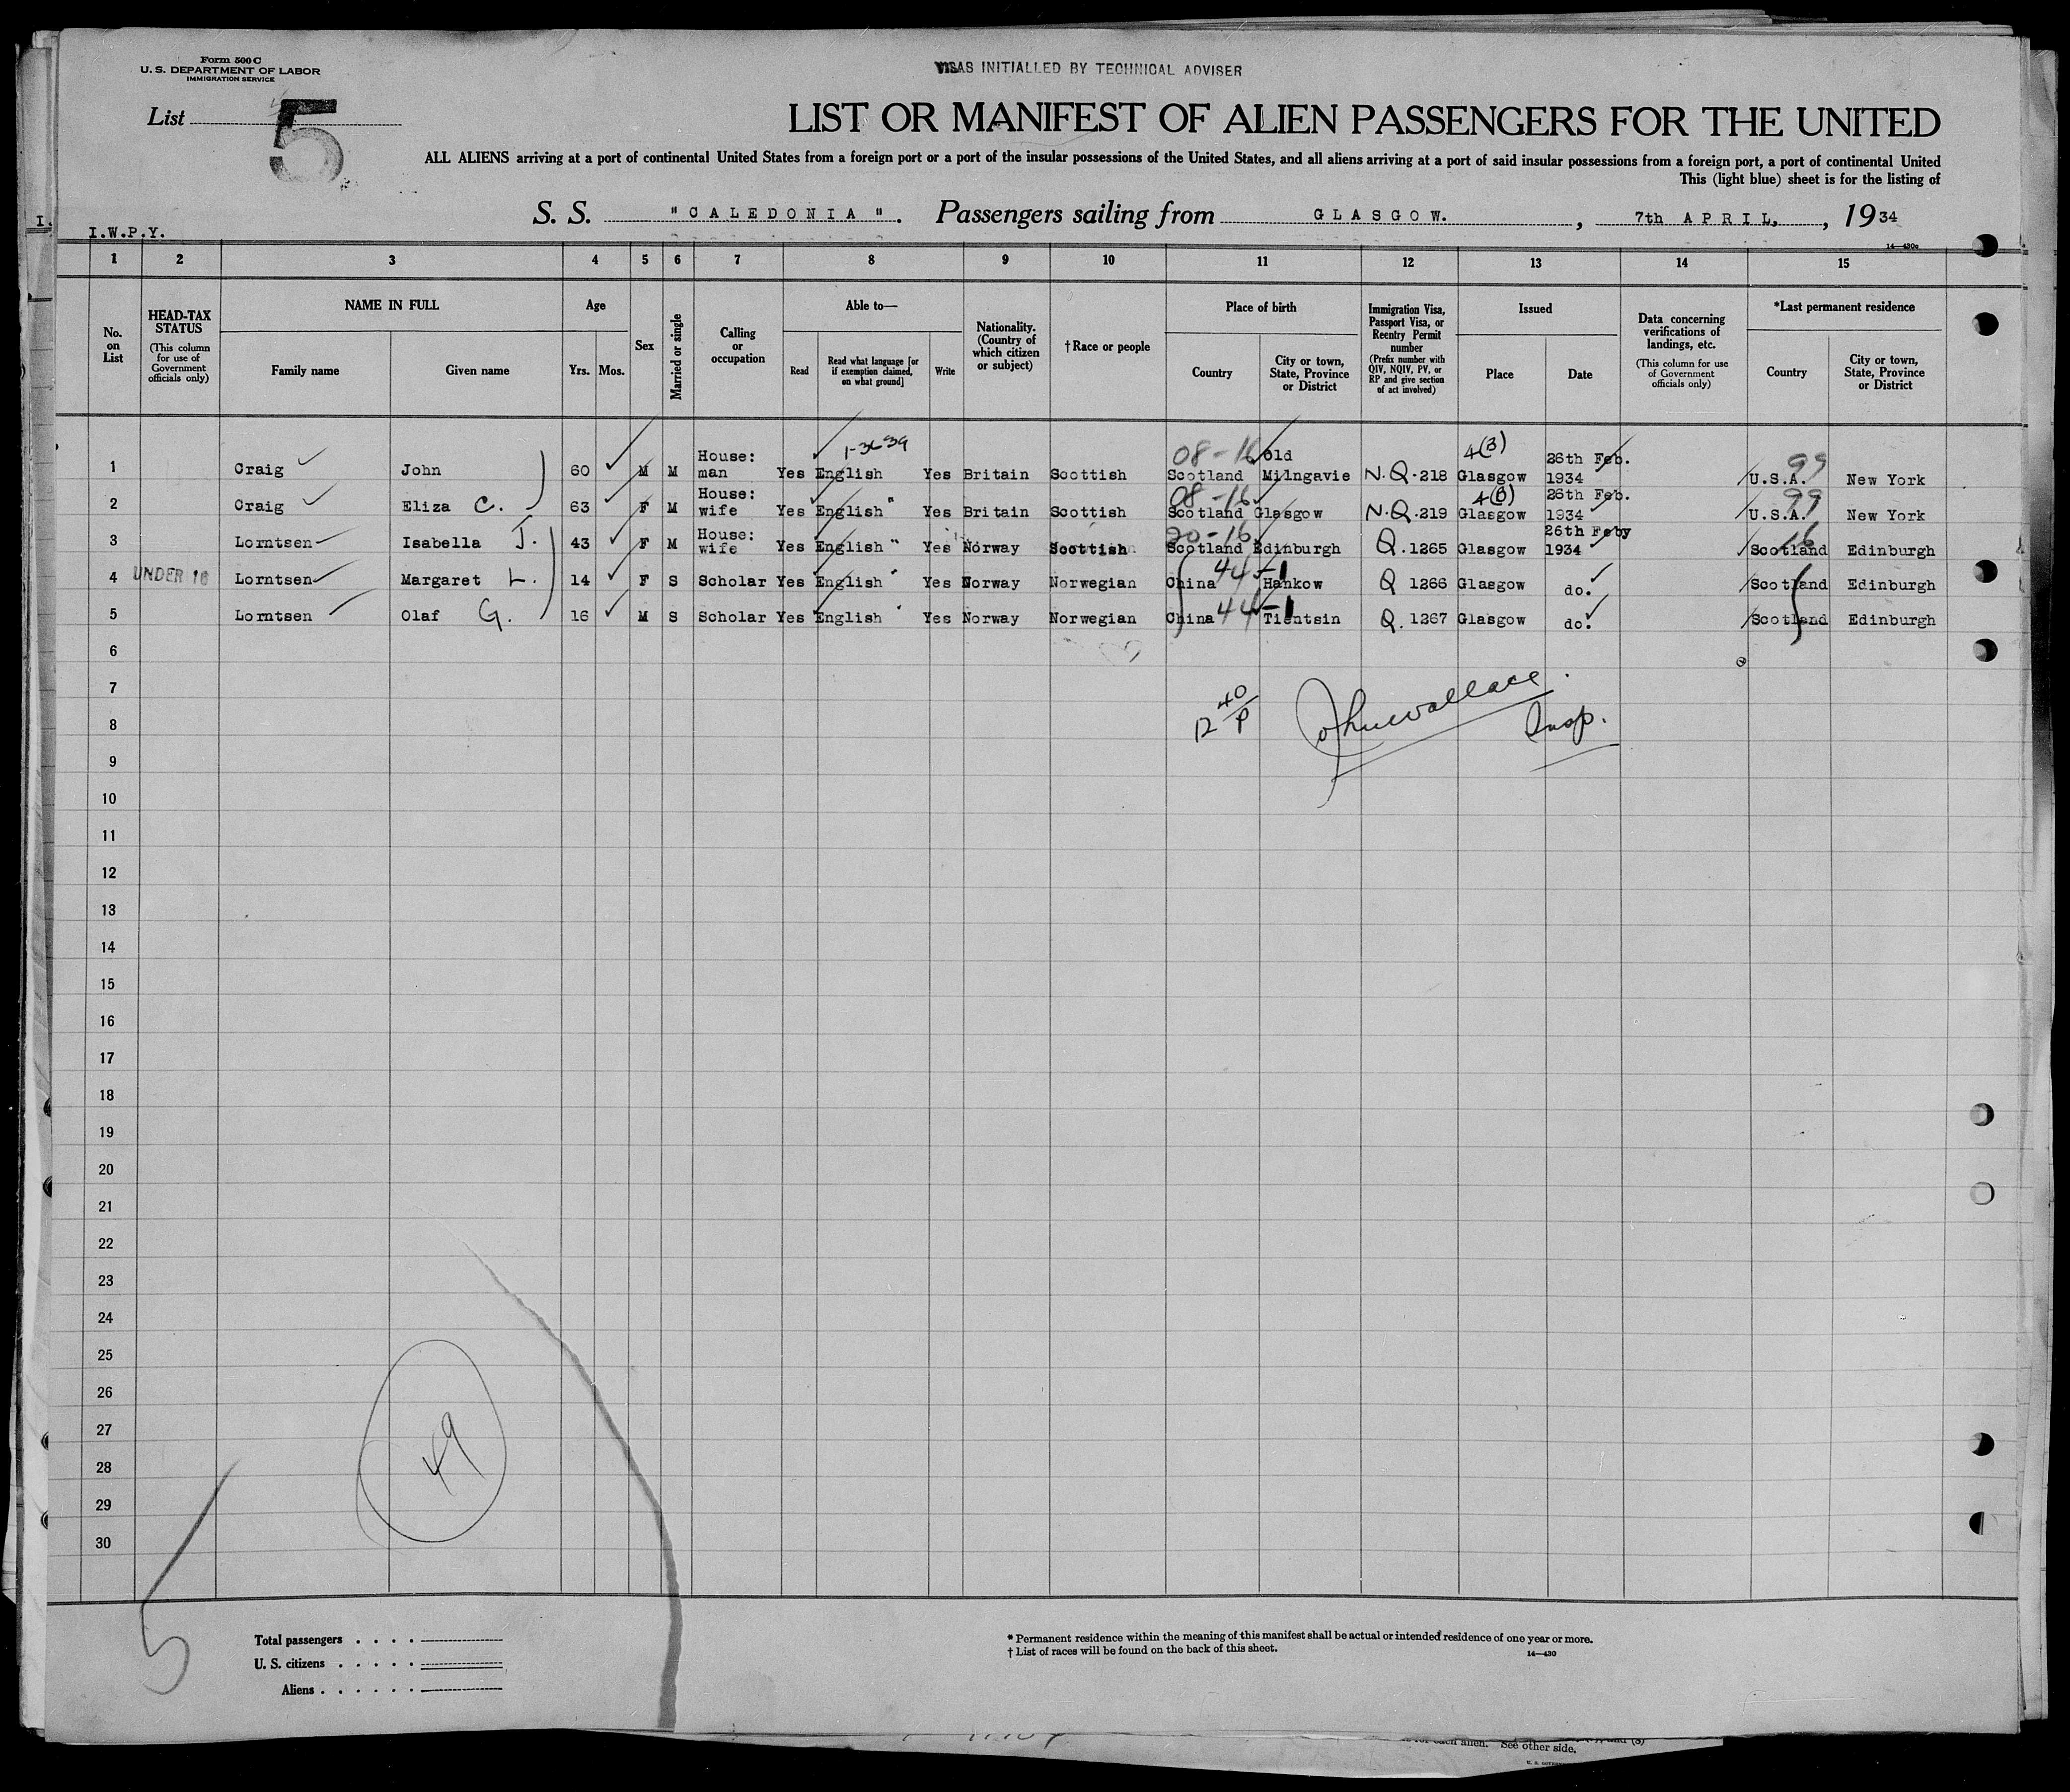 Form 500 C
U. S. DEPARTMENT OF LABOR
IMMIGRATION SERVICE
VISAS INITIALLED BY TECHNICAL ADVISER
List 5
LIST OR MANIFEST OF ALIEN PASSENGERS FOR THE UNITED
ALL ALIENS arriving at a port of continental United States from a foreign port or a port of the insular possessions of the United States, and all aliens arriving at a port of said insular possessions from a foreign port, a port of continental United
This (light blue) sheet is for the listing of
S. S. "CALEDONIA". Passengers sailing from GLASGOW. , 7th APRIL, , 1934
I.
I.W.P.Y.
14—430c
1 2 3 4 5 6 7 8 9 10 11 12 13 14 15
No. on List
HEAD-TAX STATUS (This column for use of Government officials only)
NAME IN FULL
Family name
Given name
Age
Yrs. Mos.
Sex
Married or single
Calling or occupation
Able to—
Read
Read what language [or if exemption claimed, on what ground]
Write
Nationality. (Country of which citizen or subject)
†Race or people
Place of birth
Country
City or town, State, Province or District
Immigration Visa, Passport Visa, or Reentry Permit number (Prefix number with QIV, NQIV, PV, or RP and give section of act involved)
Issued
Place
Date
Data concerning verifications of landings, etc. (This column for use of Government officials only)
*Last permanent residence
Country
City or town, State, Province or District
1-3-39
08-16
4(B)
99
1 Craig John 60 M M House: man Yes English Yes Britain Scottish Scotland Old Milngavie N.Q.218 Glasgow 26th Feb. 1934 U.S.A. New York
08-16
4(B)
99
2 Craig Eliza C. 63 F M House: wife Yes English " Yes Britain Scottish Scotland Glasgow N.Q.219 Glasgow 26th Feb. 1934 U.S.A. New York
20-16
16
3 Lorntsen Isabella J. 43 F M House: wife Yes English " Yes Norway Scottish Scotland Edinburgh Q.1265 Glasgow 26th Feby 1934 Scotland Edinburgh
4 UNDER 16 Lorntsen Margaret L. 14 F S Scholar Yes English " Yes Norway Norwegian China 44-1 Hankow Q 1266 Glasgow do. Scotland Edinburgh
5 Lorntsen Olaf G. 16 M S Scholar Yes English " Yes Norway Norwegian China 44-1 Tientsin Q. 1267 Glasgow do. Scotland Edinburgh
6
7
12 40/P John Wallace Insp.
8
9
10
11
12
13
14
15
16
17
18
19
20
21
22
23
24
25
26
27
49
28
29
30
5
Total passengers
U. S. citizens
Aliens
* Permanent residence within the meaning of this manifest shall be actual or intended residence of one year or more.
† List of races will be found on the back of this sheet.
14—430
each alien. See other side.